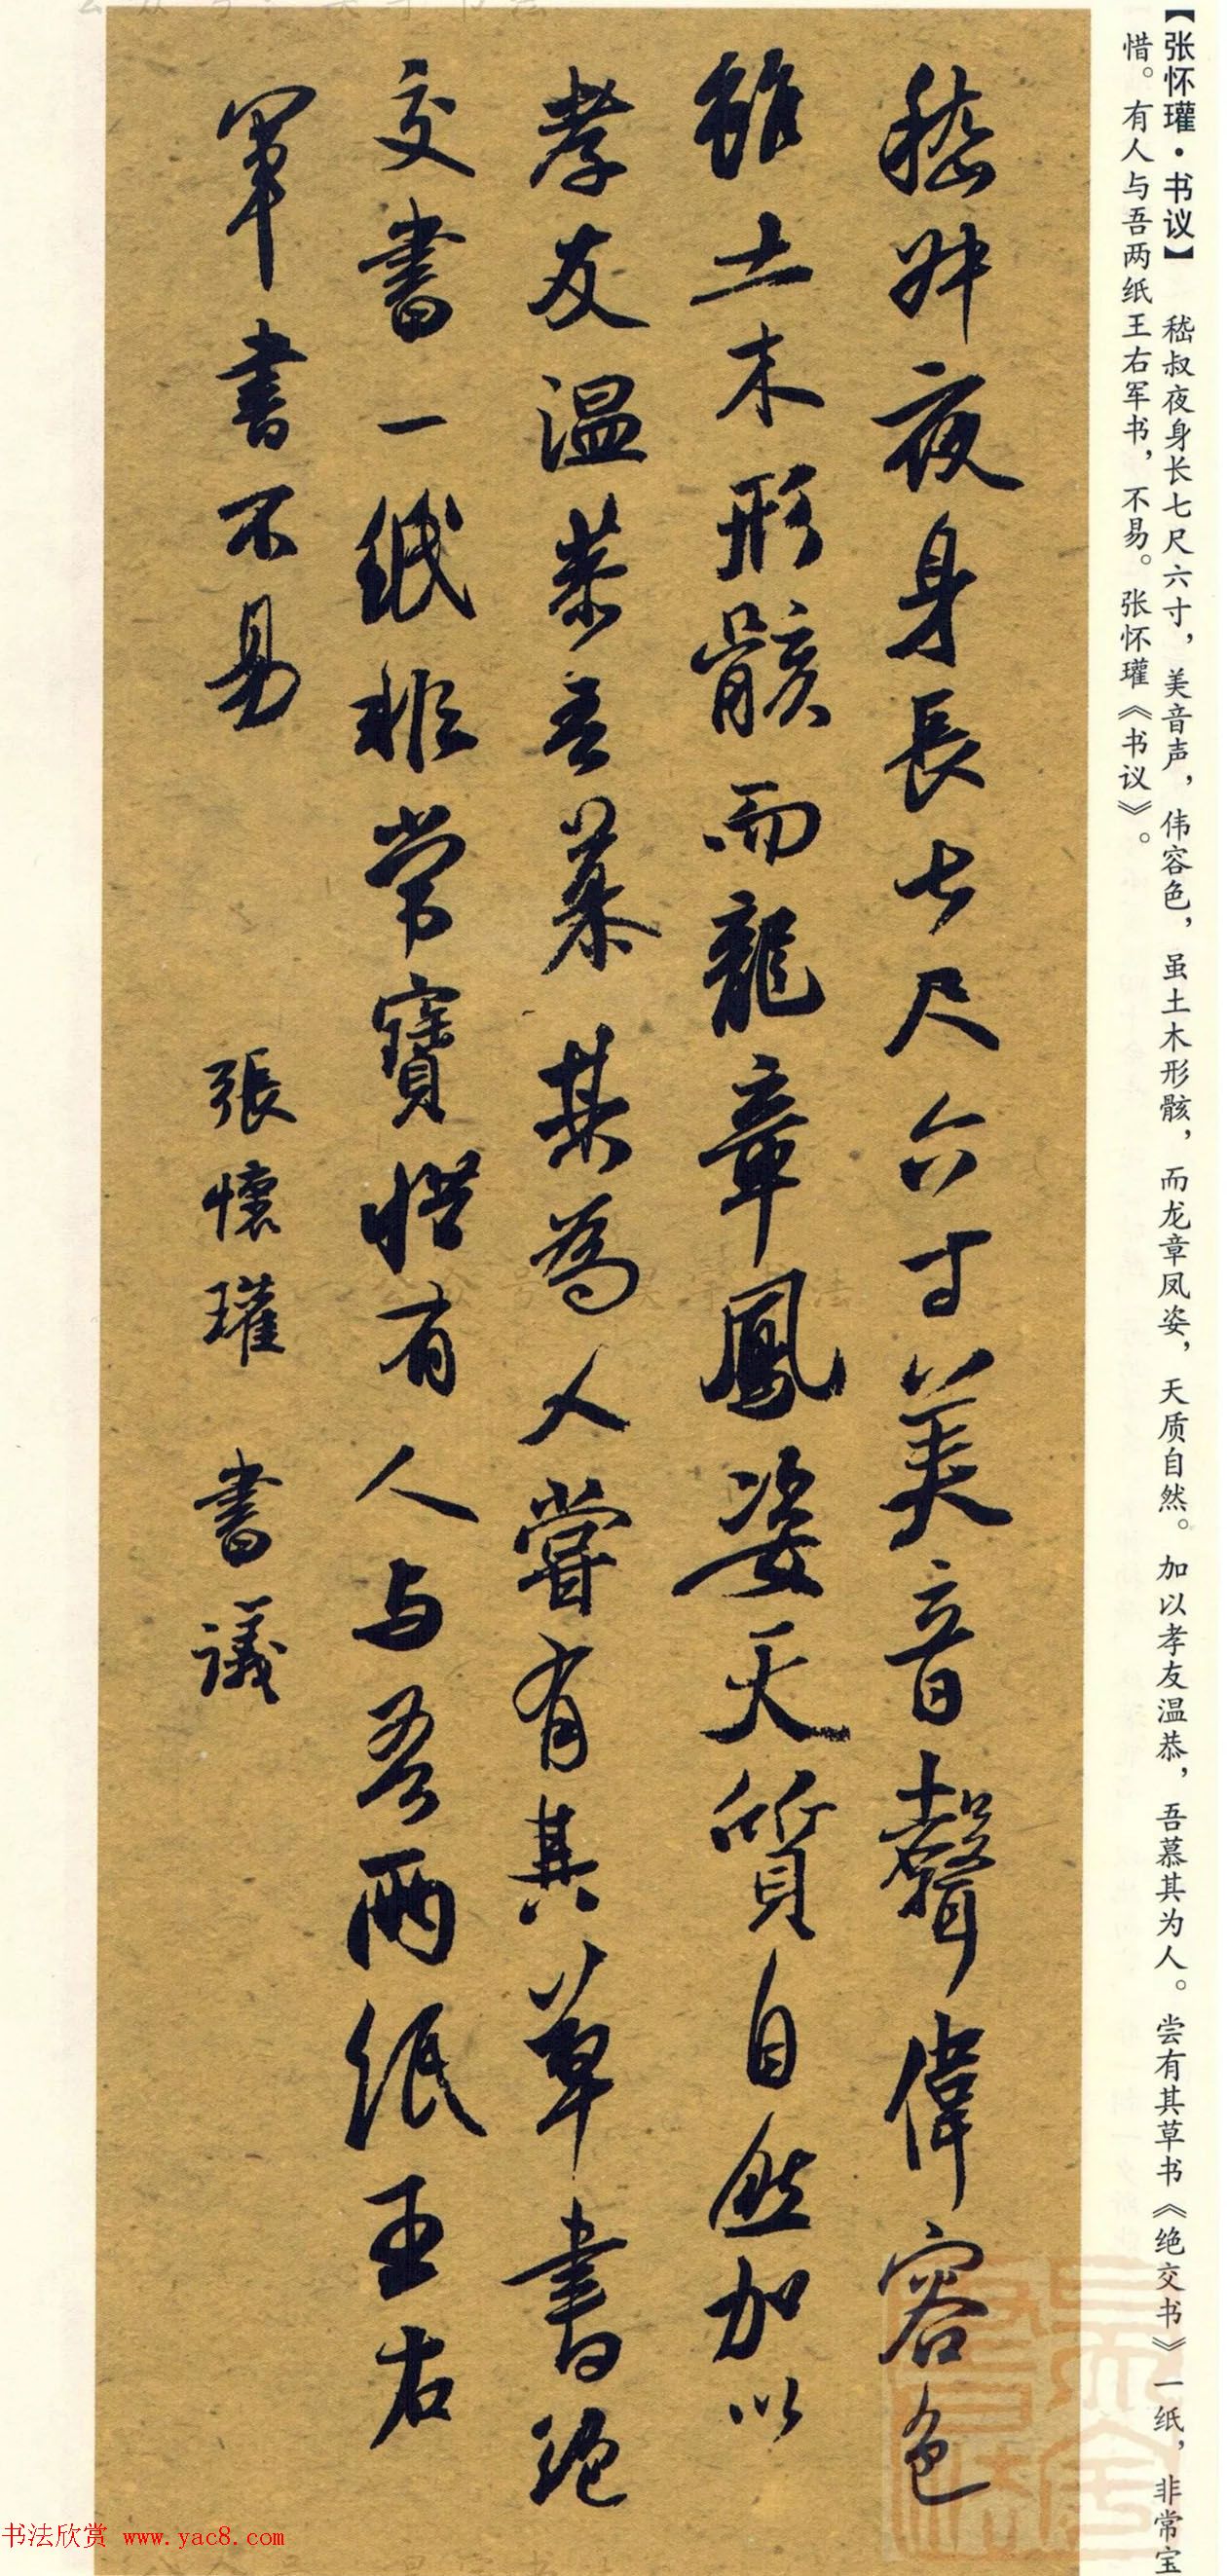 【张怀瓘·书议】 嵇叔夜身长七尺六寸，美音声，伟容色，虽土木形骸，而龙章凤姿，天质自然。加以孝友温恭，吾慕其为人。尝有其草书《绝交书》一纸，非常宝
惜。有人与吾两纸王右军书，不易。张怀瓘《书议》。
嵇叔夜身長七尺六寸美音聲偉容色
雖土木形骸而龍章鳳姿天質自然加以
孝友温恭吾慕其為人嘗有其草書絶
交書一紙非常寶惜有人与吾兩紙王右
軍書不易
張懷瓘 書議
书法欣赏 www.yac8.com